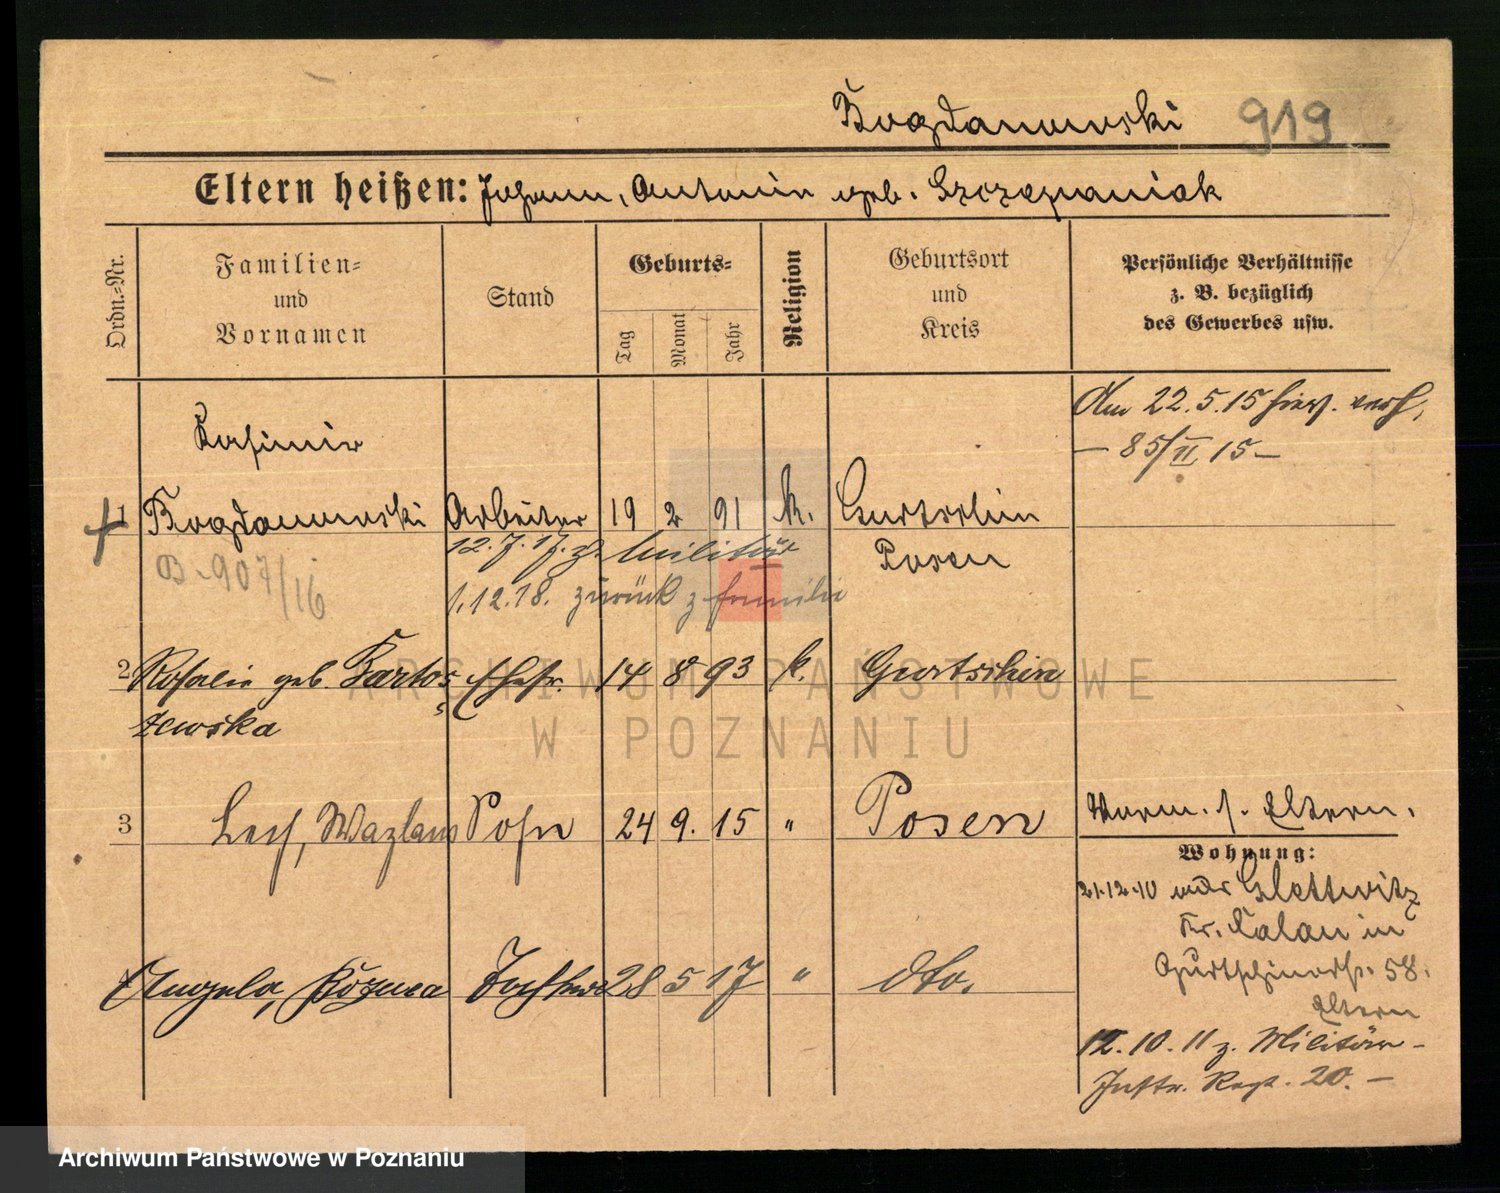 Bogdanowski 919
Eltern heißen: Johann, Antonin geb. Szczepaniak
Ordn.-Nr.
Familien-
und
Vornamen
Stand
Geburts-
Tag
Monat
Jahr
Religion
Geburtsort
und
Kreis
Persönliche Verhältnisse
z. B. bezüglich
des Gewerbes usw.
Am 22.5.15 verh.
– 85/II 15 –
Kasimir
1 Bogdanowski Arbeiter 19 2 91 k. Gurtschin
12.7.17. z. Militär Posen
B. 907/16
1.12.18. zurück z Familie
2 Rosalie geb. Bartos Ehefr. 14 8 93 k. Gurtschin
zewska
3 Lech, Wazlaus Sohn 24 9. 15 " Posen
Vorm. s. Eltern.
Wohnung:
21.12.10 Klettwitz
Kr. Kalau in
Gurtschinerstr. 58.
Eltern
Angela, Bożena Tochter 28 5 17 " dto.
12.10.11 z. Militär –
Inftr. Regt. 20. –
ARCHIWUM PAŃSTWOWE
W POZNANIU
Archiwum Państwowe w Poznaniu